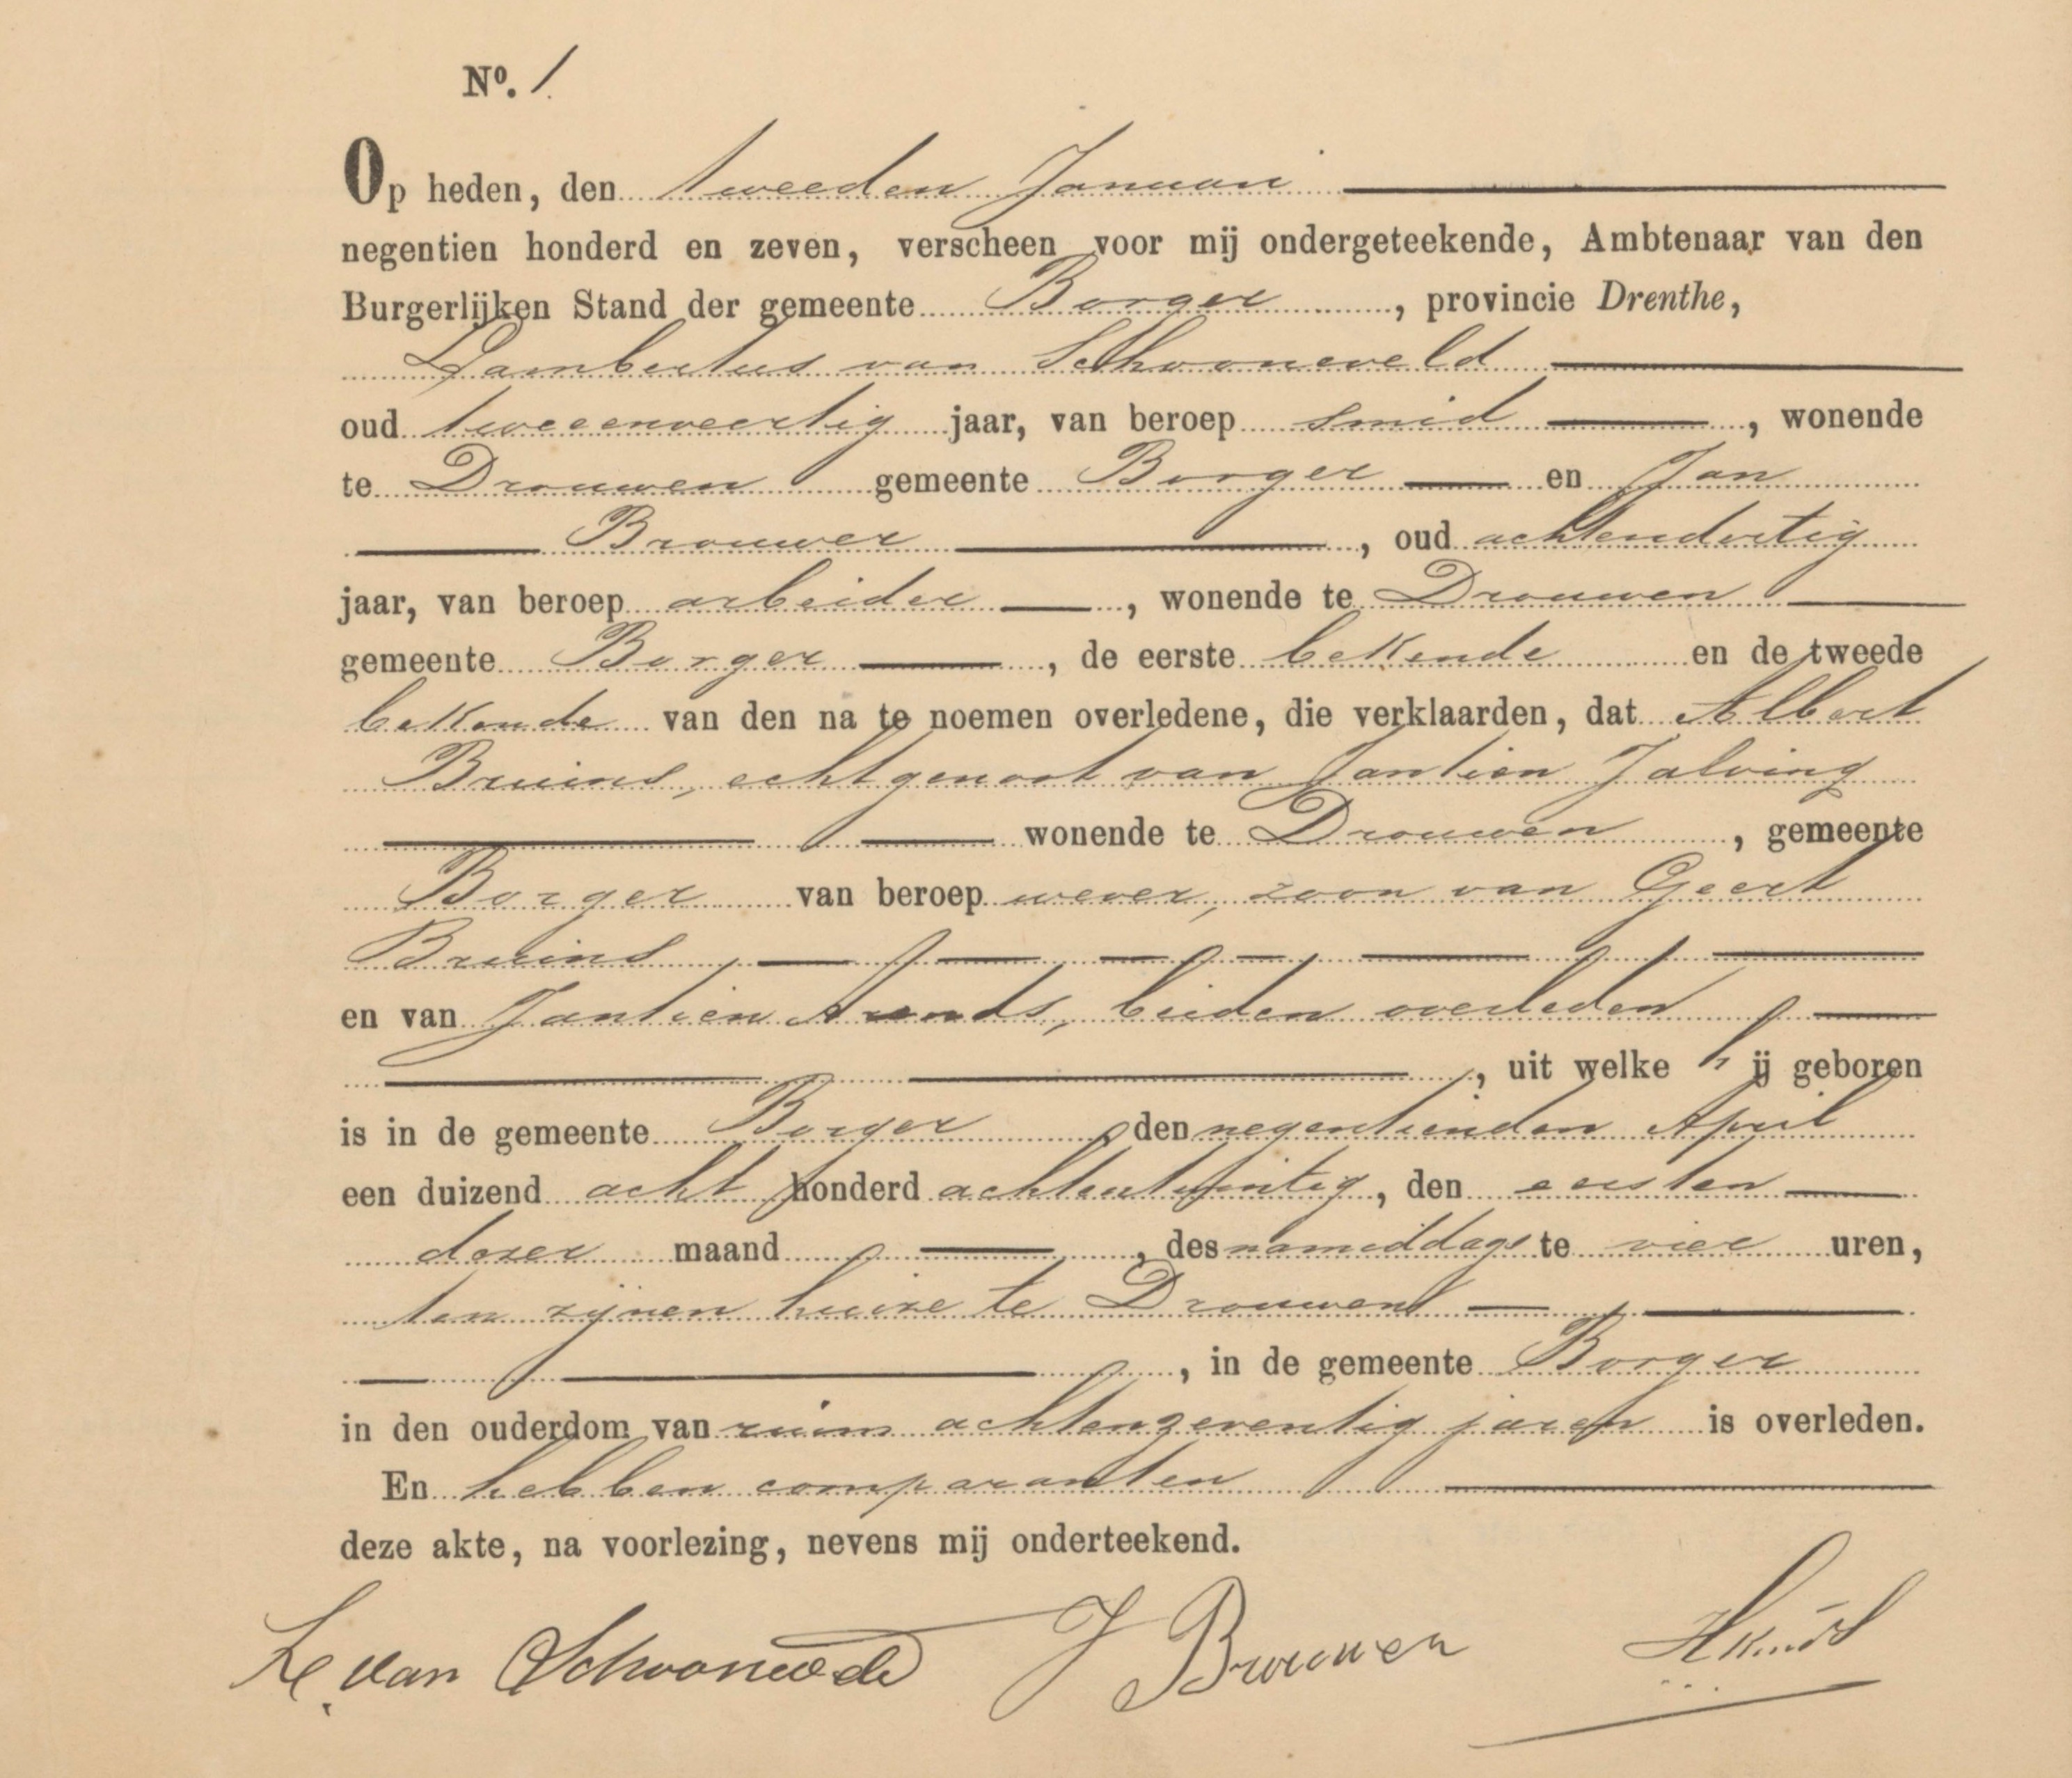 No. 1.
Op heden, den tweeden Januari
negentien honderd en zeven, verscheen voor mij ondergeteekende, Ambtenaar van den
Burgerlijken Stand der gemeente Borger, provincie Drenthe,
Lambertus van Schooneveld
oud tweeenveertig jaar, van beroep smid, wonende
te Drouwen gemeente Borger en Jan
Brouwer, oud achtendertig
jaar, van beroep arbeider, wonende te Drouwen
gemeente Borger, de eerste bekende en de tweede
bekende van den na te noemen overledene, die verklaarden, dat Albert
Bruins, echtgenoot van Jantien Jalving
wonende te Drouwen, gemeente
Borger van beroep wever, zoon van Geert
Bruins
en van Jantien Arends, beiden overleden
, uit welke hij geboren
is in de gemeente Borger den negentienden April
een duizend acht honderd achtentwintig, den eersten
dezer maand, des namiddags te vier uren,
ten zijnen huize te Drouwen
, in de gemeente Borger
in den ouderdom van ruim achtenzeventig jaren is overleden.
En hebben comparanten
deze akte, na voorlezing, nevens mij onderteekend.
L. van Schooneveld J Brouwer